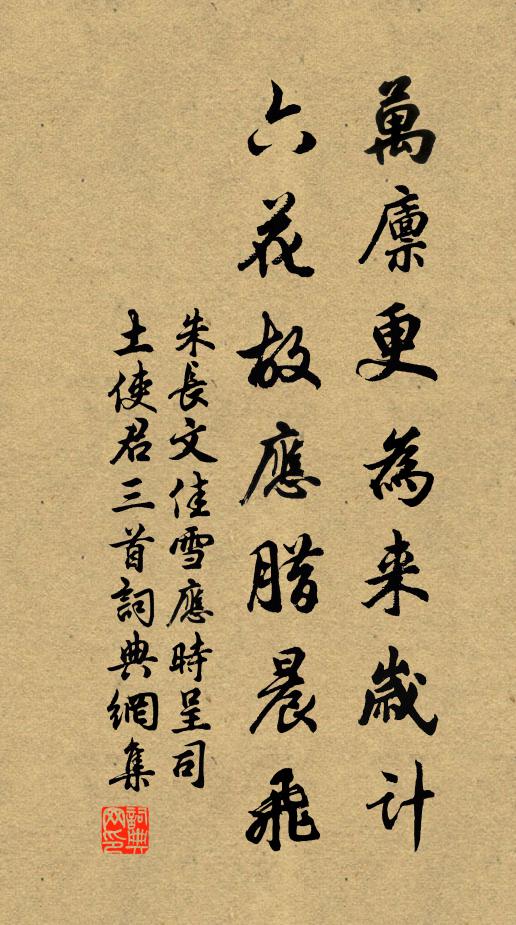 萬廩更為来歲计
六花故應腊晨飛
朱長文佳雪應時呈司
土使君三首詞典網集
詞典網印